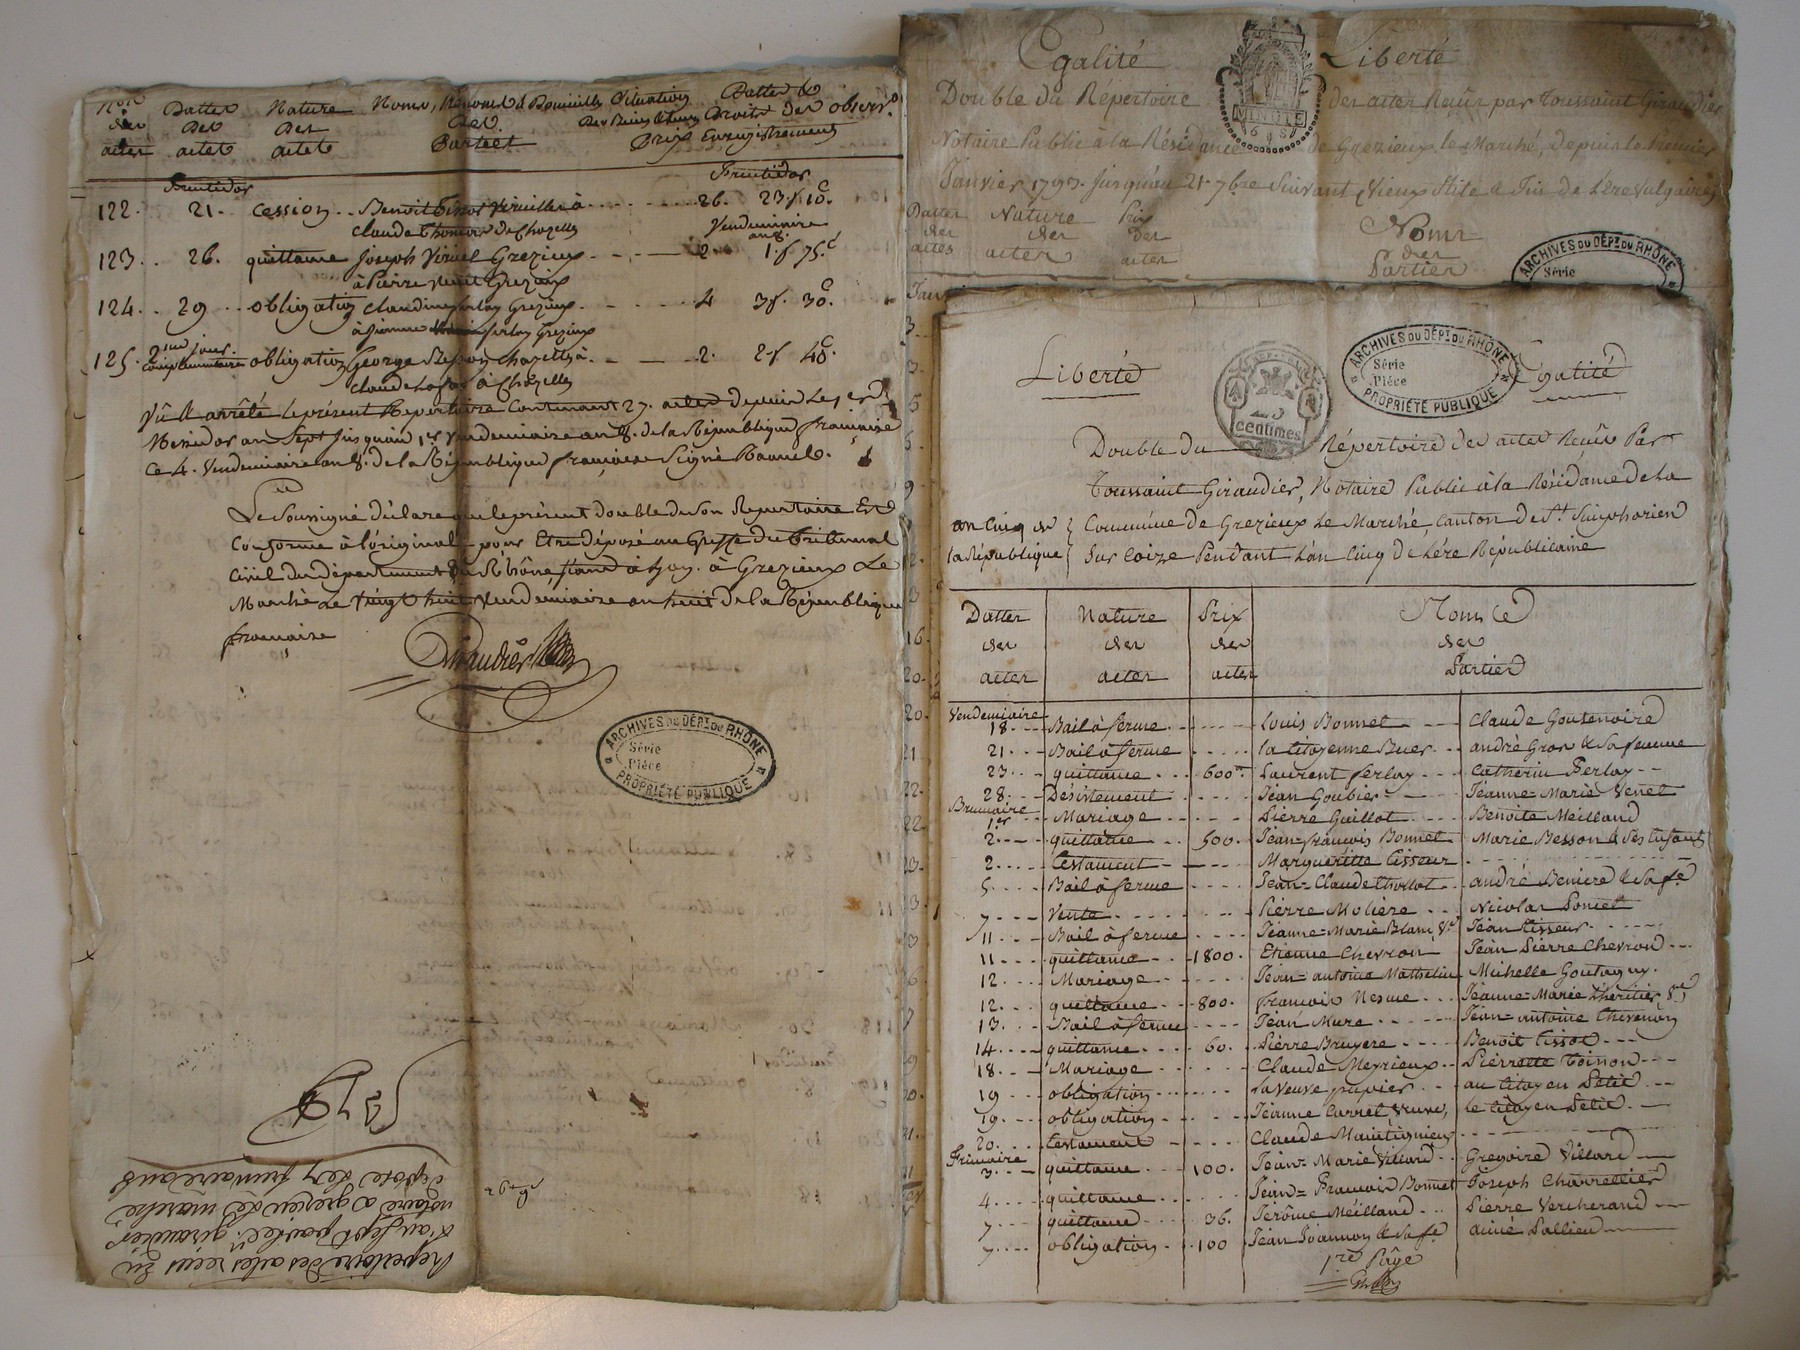 Nos. Dattes Nature Noms, Prénoms & Domicilles Situation Datte &
des des des des Des Biens & leurs Droits des observ.
actes actes actes Parties Prix Enregistrement
Fructidor Fructidor
122. 21. cession Benoit Tissot Viricelles à 26. 23f 10c.
Claude Thomas de Chazelles Vendemiaire
an 8.
123. 26. quittance Joseph Viricel Grezieux 2 1f 75c
à Pierre Grezieux
124. 29 obligation Claudine ferlay Grezieux 4 3f. 30c.
à ferlay Grezieux
125. 2me jour
complementaire obligation George Chazelles à 2. 2f 40c.
Claude à Chazelles
Vû & arrêté le présent Repertoire Contenant 27. actes depuis le 1er
Messidor an Sept jusqu'au 1er Vendemiaire an 8. de la République française
ce 4. Vendemiaire an 8. de la République française Signé
Le Soussigné déclare que le présent double de son Repertoire Est
Conforme à l'original pour Etre déposé au Greffe du Tribunal
Civil du département du Rhône, séant à Lyon. à Grezieux Le
Marché Le Vingt huit Vendemiaire an huit de la République
française
Giraudier
ARCHIVES DU DÉPT DU RHÔNE
Série
Pièce
PROPRIÉTÉ PUBLIQUE
Repertoire des actes reçus en
l'an sept par le cn giraudier
notaire a grezieu le marché
deposé le 7 frimaire an 8
Egalité Liberté
MINUTE
Double du Répertoire des actes Reçûs par Toussaint Giraudier
Notaire Public à la Résidance de Grezieux le Marché, depuis le Premier
Janvier 1793. jusqu'au 21. 7bre Suivant (Vieux Stile & Fin de L'Ere Vulgaire)
Dattes Nature Prix Noms
des des des des
actes actes actes Parties
ARCHIVES DU DÉPT DU RHÔNE
Série
Liberté Egalité
25
centimes
ARCHIVES DU DÉPT DU RHÔNE
Série
Pièce
PROPRIÉTÉ PUBLIQUE
Double du Répertoire des actes Reçûs Par
Toussaint Giraudier, Notaire Public à la Résidance de La
an Cinq de Commune de Grezieux Le Marché, Canton de St. Simphorien
la République Sur Coize Pendant L'an Cinq de L'ére Républicaine
Dattes Nature Prix Noms
des des des des
actes actes actes Parties
Vendemiaire
18. Bail à ferme Louis Bonnet Claude Goutenoire
21. Bail à ferme la Citoyenne Buer andré Gros & Sa femme
23. quittance 600 Laurent ferlay Catherin Ferlay
28. Désistement Jean Goubier Jeanne-Marie Venet
Brumaire
1er Mariage Pierre Guillot Benoîte Meilland
2. quittance 500. Jean-françois Bonnet Marie Besson & Ses Enfants
2. Testament Margueritte Tisseur
5. Bail à ferme Jean-Claude Thollot andré Beniere & Sa fe
7. Vente Pierre Moliere Nicolas Poncet
11. Bail à ferme Jeanne-Marie Blanc, Ve Jean Tisseur
11. quittance 1800. Etienne Chevron Jean Pierre Chevron
12. Mariage Jean-antoine Mathelin Michelle Goutagny.
12. quittance 800. françois Nesme Jeanne-Marie Lhéritier, Ve
13. Bail à ferme Jean Mure Jean-antoine Thevenon
14. quittance 60. Pierre Bruyere Benoît Tissot
18. Mariage Claude Meyrieux Pierrette Toinon
19 obligation La Veuve pupier au Citoyen Petit
19. obligation Jeanne Carret Veuve, le Citoyen Petit
20. Testament Claude
Frimaire
3. quittance 100. Jean-Marie Villard Gregoire Villard
4. quittance Jean-François Bonnet Joseph Charretier
7. quittance 36. Jerôme Meilland Pierre Vercherand
7. obligation 100 Jean Joannon & Sa fe aimé Pallieu
1re Page